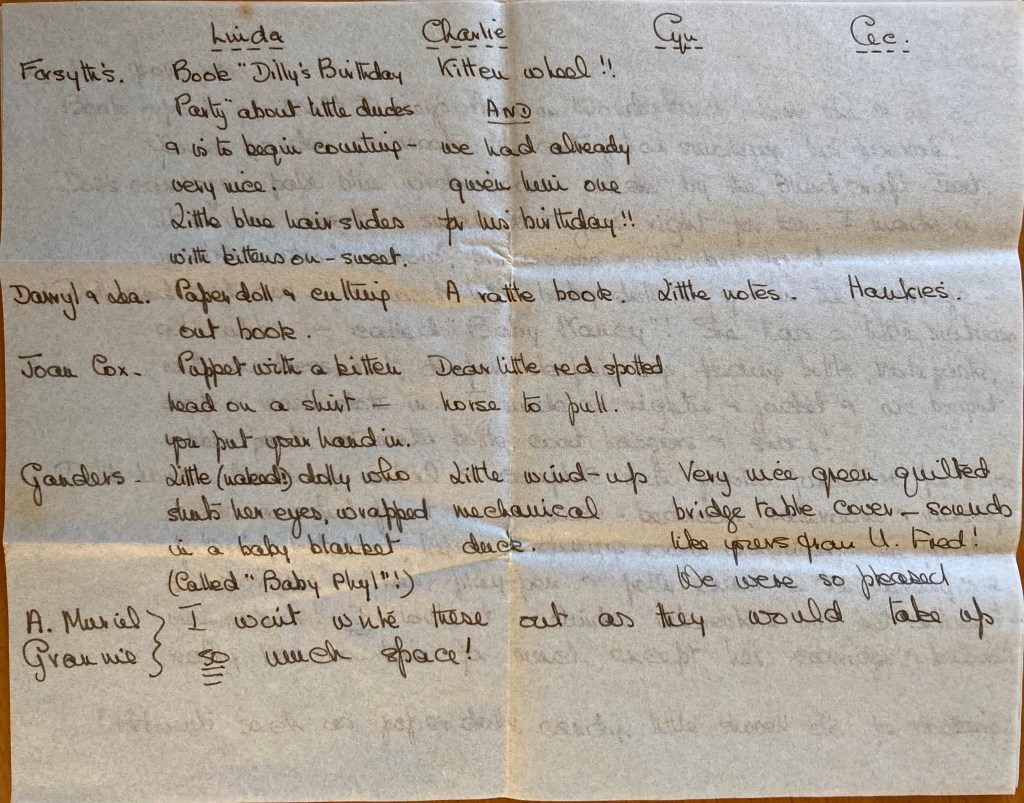 Linda Charlie Cyn Cec.
Forsyth's. Book "Dilly's Birthday Kitten wheel!!
Party" about little ducks AND
& is to begin counting - we had already
very nice. given him one
Little blue hair slides for his birthday!!
with kittens on - sweet.
Darryl & Paper doll & cutting A rattle book. Little notes. Hankies.
out book.
Joan Cox - Puppet with a kitten Dear little red spotted
head on a shirt - horse to pull.
you put your hand in.
Ganders - Little (naked!) dolly who Little wind-up Very nice green quilted
shuts her eyes, wrapped mechanical bridge table cover - sounds
in a baby blanket duck. like yours from U. Fred!
(Called "Baby Phyl"!) We were so pleased
A. Muriel } I won't write these out as they would take up
Grannie } so much space!